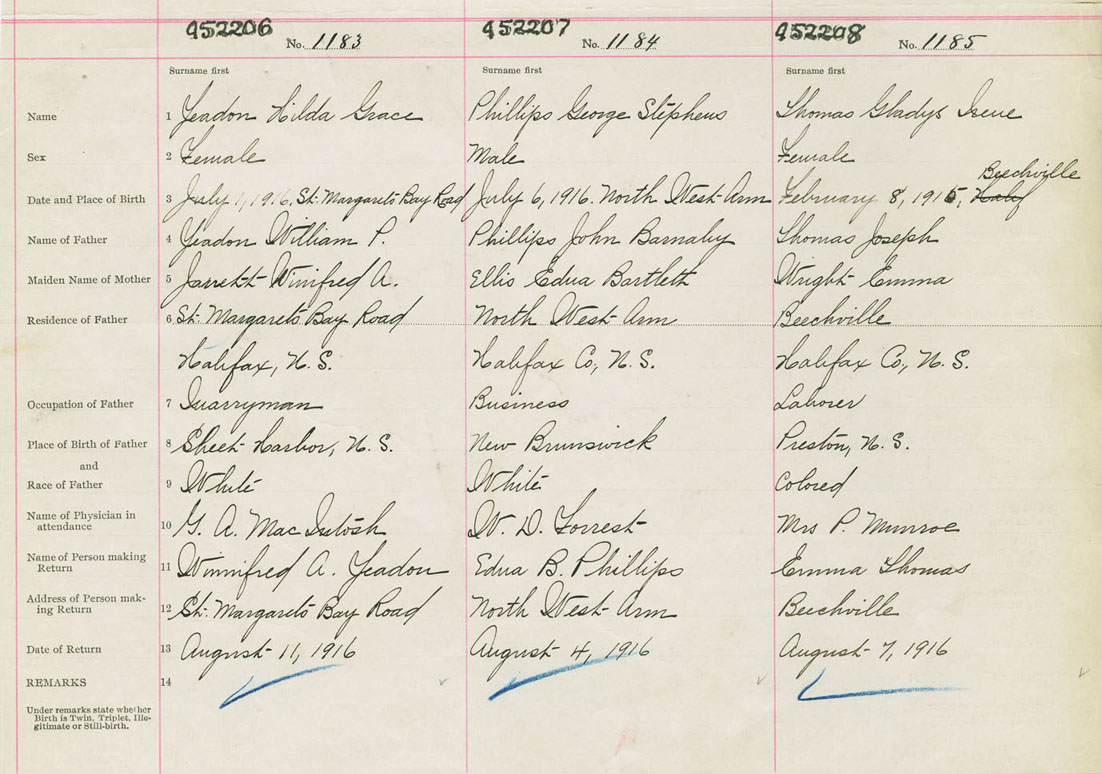 952206 No. 1183 952207 No. 1184 952208 No. 1185
Surname first Surname first Surname first
Name 1 Yeadon Hilda Grace Phillips George Stephens Thomas Gladys Irene
Sex 2 Female Male Female
Beechville
Date and Place of Birth 3 July 1, 1916, St. Margarets Bay Road July 6, 1916. North West Arm February 8, 1915,
Name of Father 4 Yeadon William P. Phillips John Barnaby Thomas Joseph
Maiden Name of Mother 5 Jarrett Winifred A. Ellis Edna Bartlett Wright Emma
Residence of Father 6 St. Margarets Bay Road North West Arm Beechville
Halifax, N.S. Halifax Co, N.S. Halifax Co, N.S.
Occupation of Father 7 Quarryman Business Laborer
Place of Birth of Father 8 Sheet Harbor, N.S. New Brunswick Preston, N.S.
and
Race of Father 9 White White Colored
Name of Physician in
attendance 10 G. A. MacIntosh W. D. Forrest Mrs P. Munroe
Name of Person making
Return 11 Winnifred A. Yeadon Edna B. Phillips Emma Thomas
Address of Person mak-
ing Return 12 St. Margarets Bay Road North West Arm Beechville
Date of Return 13 August 11, 1916 August 4, 1916 August 7, 1916
REMARKS 14
Under remarks state whether
Birth is Twin, Triplet, Ille-
gitimate or Still-birth.